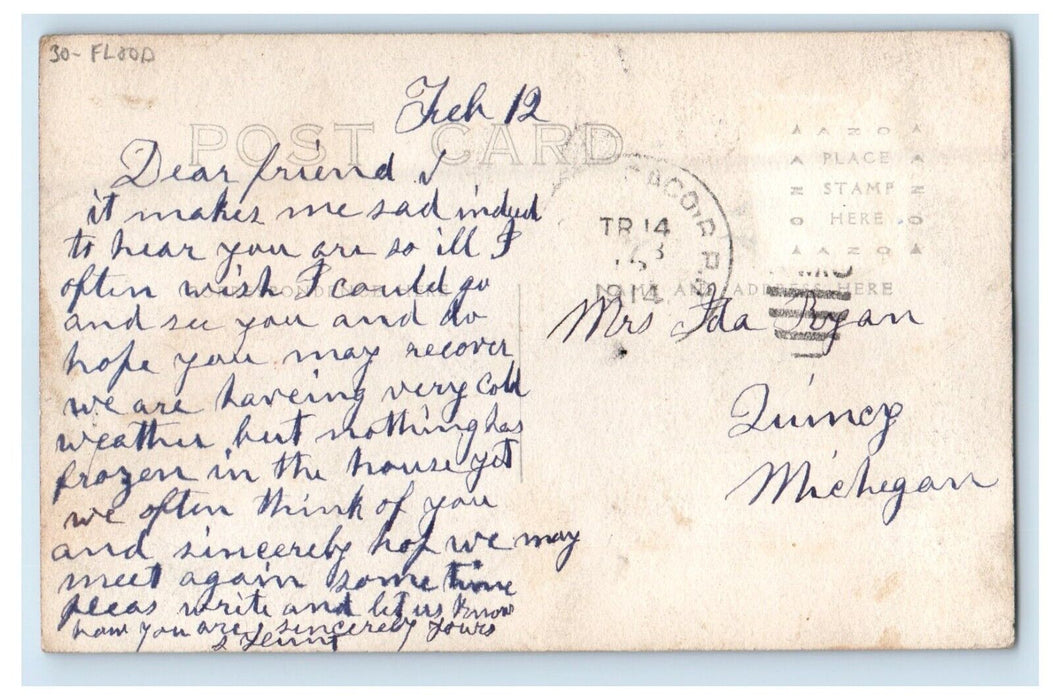 30- FLOOD
Feb 12
POST CARD
Dear friend
it makes me sad indeed
to hear you are so ill I
often wish I could go
and see you and do
hope you may recover
we are haveing very cold
weather but nothing has
frozen in the house yet
we often think of you
and sincereby hop we may
meet again some time
pleas write and let us know
how you are sincereby yours
CORRESPONDENCE HERE
AZNO
PLACE
STAMP
HERE
AZNO
CO. R.P.
TR 14
1914
NAME AND ADDRESS HERE
Mrs Ida Ryan
Quincy
Michegan